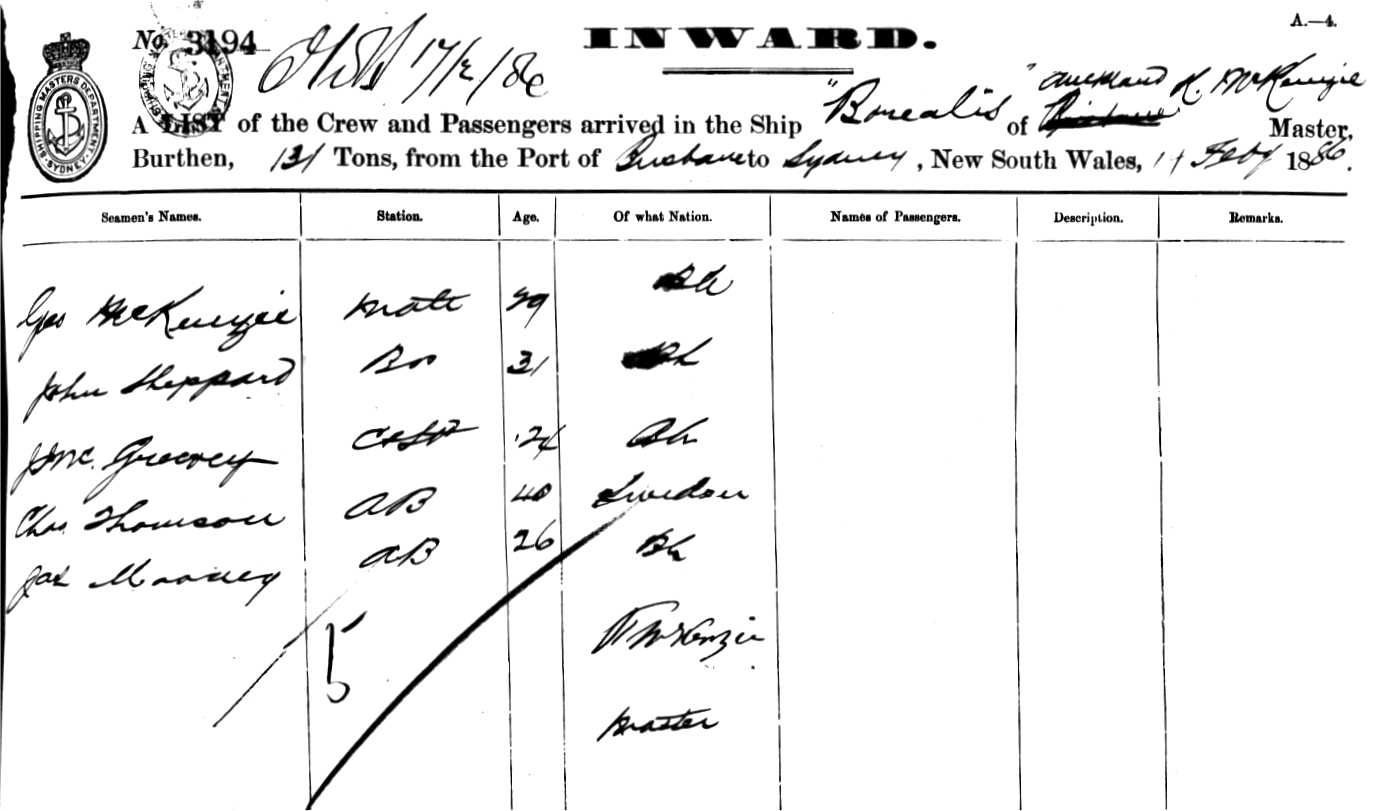 A.—4.
No. 3194 17/2/86
INWARD.
SHIPPING MASTERS DEPARTMENT SYDNEY
A LIST of the Crew and Passengers arrived in the Ship "Borealis" of Auckland K. McKenzie Master,
Burthen, 131 Tons, from the Port of Brisbane to Sydney, New South Wales, 17 Feby 1886.
Seamen's Names. Station. Age. Of what Nation. Names of Passengers. Description. Remarks.
Geo McKenzie Mate 29 Bh
John Sheppard Bo 31 Bh
J. Mc. Greevey 24 Bh
Chas Thomson AB 40 Sweden
Jas Mooney AB 26 Bh
5
K McKenzie
Master